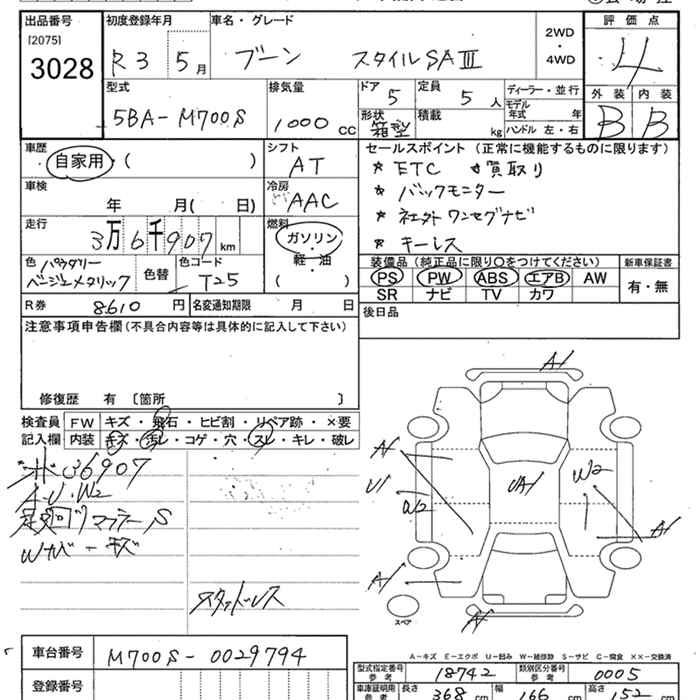 出品番号 初度登録年月 車名・グレード 評価点
[2075]
3028
R3 5月 ブーン スタイルSAⅢ 2WD・4WD 4
型式 排気量 ドア 定員 ディーラー・並行 外装 内装
5BA-M700S 1000cc 5 5人 モデル年式 年 B B
形状 箱型 積載 kg ハンドル 左・右
車歴 シフト セールスポイント (正常に機能するものに限ります)
自家用・( ) AT * ETC *買取り
車検 冷房 * バックモニター
年 月( 日) AAC * 社外ワンセグナビ
走行 燃料 * キーレス
3万6千907km ガソリン・軽・油 ( )
色 パウダリーベージュメタリック 色替 色コード T25
装備品 (純正品に限り○をつけてください) 新車保証書
PS PW ABS エアB AW 有・無
SR ナビ TV カワ
R券 8610円 名変通知期限 月 日 後日品
注意事項申告欄(不具合内容等は具体的に記入して下さい)
修復歴 有 〔箇所 〕
検査員 FW キズ・飛石・ヒビ割・リペア跡・×要
記入欄 内装 キズ・汚レ・コゲ・穴・スレ・キレ・破レ
36907
A・U・W2
マフラーS
スタッドレス
A1
A1
U1
W2
UA1
W2
A1
A1
スペア
A-キズ E-エクボ U-凹み W-補修跡 S-サビ C-腐食 XX-交換済
車台番号 M700S-0029794
型式指定番号 参考 18742 類別区分番号 参考 0005
登録番号
車庫証明用 参考 長さ 368cm 幅 166cm 高さ 152cm